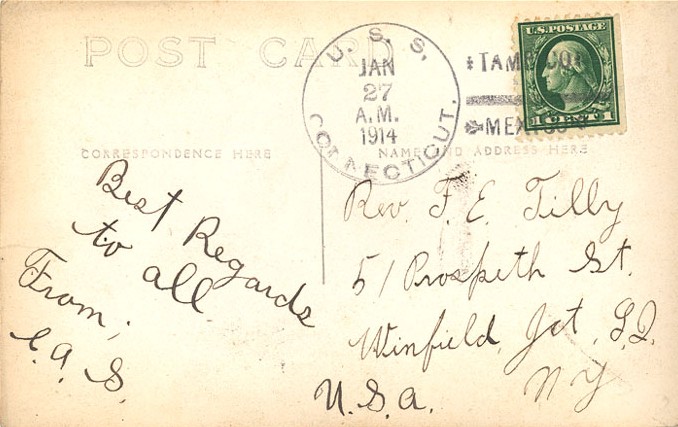 POST CARD
U.S.S. CONNECTICUT.
JAN
27
A.M.
1914
TAMPICO
MEXICO
U.S.POSTAGE
1 CENT 1
CORRESPONDENCE HERE
NAME AND ADDRESS HERE
Best Regards
to all
From,
C.A.S.
Rev. F. E. Tilly
51 Prospeth St.
Winfield, Jct, L.I.
N Y
U.S.A.